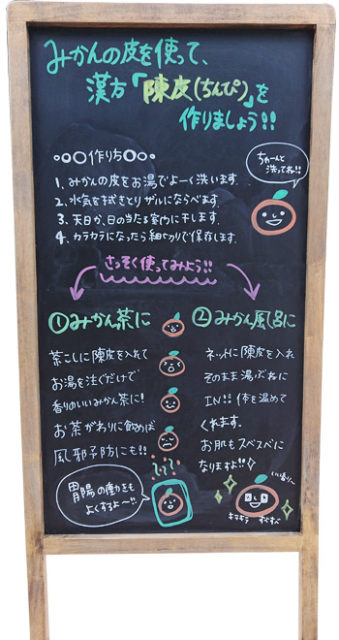 みかんの皮を使って、
漢方「陳皮(ちんぴ)」を
作りましょう!!
ちゃーんと
洗ってね!!
○○○作り方○○○
1、みかんの皮をお湯でよーく洗います。
2、水気を拭きとりザルにならべます。
3、天日か、日の当たる室内に干します。
4、カラカラになったら細かく切りで保存します。
さっそく使ってみよう!!
①みかん茶に
茶こしに陳皮を入れて
お湯を注ぐだけで
香りのいいみかん茶に!
お茶がわりに飲めば
風邪予防にも!!
胃腸の働きも
よくするよ〜!!
②みかん風呂に
ネットに陳皮を入れ
そのまま湯ぶねに
IN!! 体を温めて
くれます。
お肌もスベスベに
なりますよ!!
いい香り〜
キラキラ すべすべ